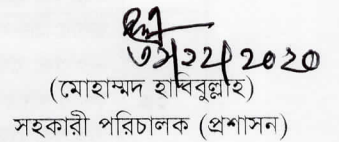 ৩১/১২/২০২০
(মোহাম্মদ হাবিবুল্লাহ)
সহকারী পরিচালক (প্রশাসন)